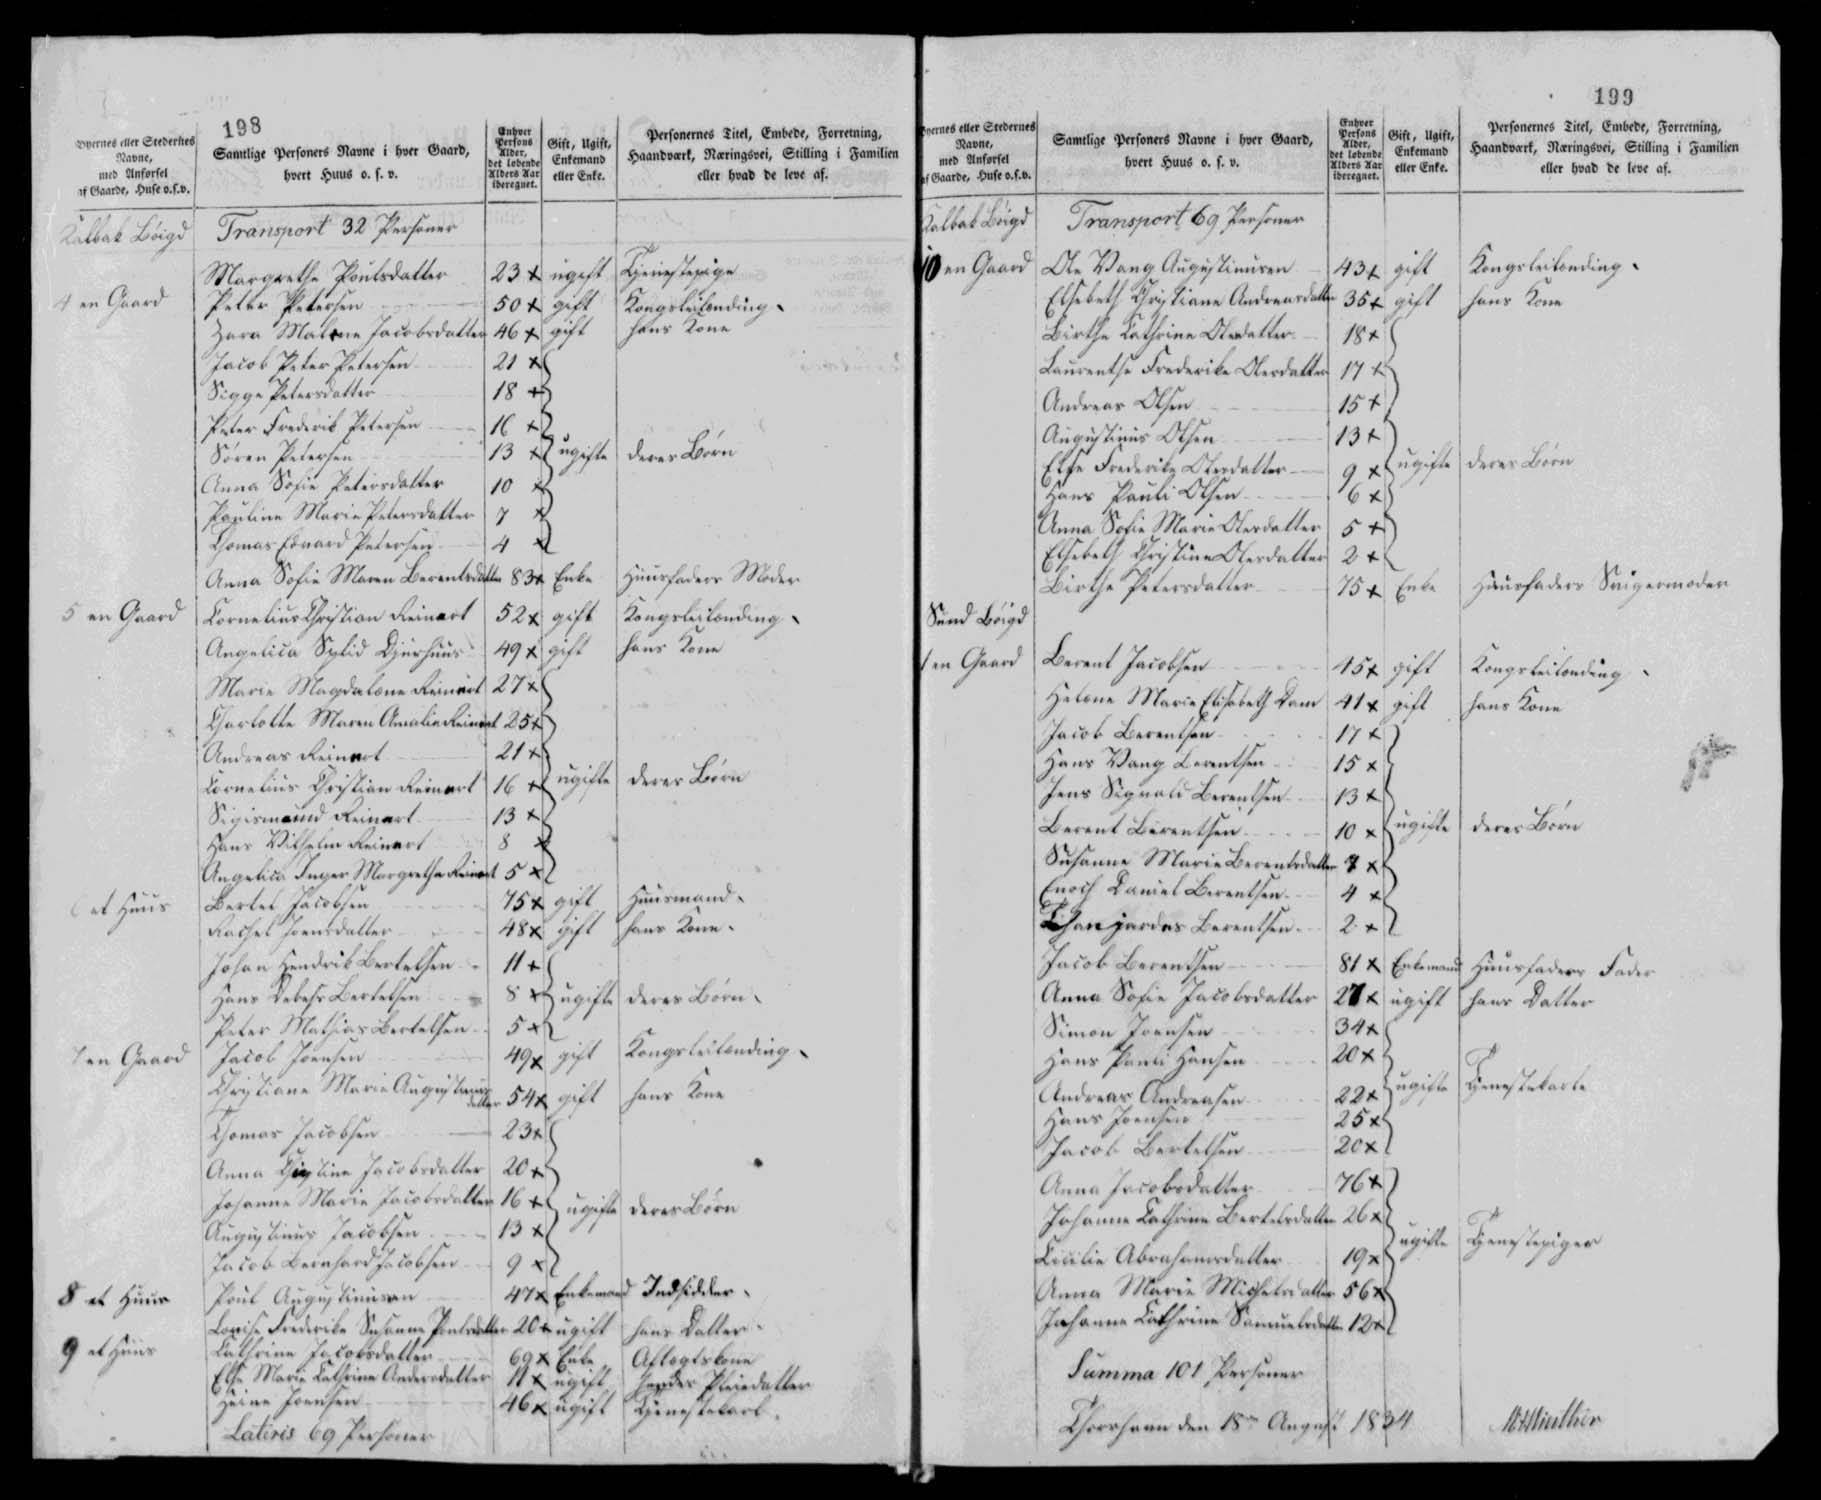 198
Byernes eller Stedernes Navne, med Anførsel af Gaarde, Huse o.s.v.
Samtlige Personers Navne i hver Gaard, hvert Huus o. s. v.
Enhver Persons Alder, det løbende Alders Aar iberegnet.
Gift, Ugift, Enkemand eller Enke.
Personernes Titel, Embede, Forretning, Haandværk, Næringsvei, Stilling i Familien eller hvad de leve af.
Kalbak Bøigd Transport 32 Personer
Margrethe Poulsdatter 23 x ugift Tjenestepige
4 en Gaard Peter Petersen 50 x gift Kongsleilending
Zara Malene Jacobsdatter 46 x gift hans Kone
Jacob Peter Petersen 21 x
Sigge Petersdatter 18 x
Peter Frederik Petersen 16 x
Søren Petersen 13 x ugifte deres Børn
Anna Sofie Petersdatter 10 x
Pauline Marie Petersdatter 7 x
Thomas Edvard Petersen 4 x
Anna Sofie Maren Berentsdatter 83 x Enke Huusfaders Moder
5 en Gaard Cornelius Christian Reinert 52 x gift Kongsleilending
Angelica Sylid Djurhuus 49 x gift hans Kone
Marie Magdalene Reinert 27 x
Charlotte Maren Amalie Reinert 25 x
Andreas Reinert 21 x
Cornelius Christian Reinert 16 x ugifte deres Børn
Sigismund Reinert 13 x
Hans Vilhelm Reinert 8 x
Angelica Inger Margrethe Reinert 5 x
6 et Huus Bertel Jacobsen 75 x gift Huusmand
Rachel Joensdatter 48 x gift hans Kone
Johan Hendrik Bertelsen 11 x
Hans Debess Bertelsen 8 x ugifte deres Børn
Peter Mathias Bertelsen 5 x
7 en Gaard Jacob Joensen 49 x gift Kongsleilending
Christiane Marie Augustinusdatter 54 x gift hans Kone
Thomas Jacobsen 23 x
Anna Christine Jacobsdatter 20 x
Johanne Marie Jacobsdatter 16 x ugifte deres Børn
Augustinus Jacobsen 13 x
Jacob Bernhard Jacobsen 9 x
8 et Huus Poul Augustinusen 47 x Enkemand Indsidder
Lovise Frederike Susanne Poulsdatter 20 x ugift hans Datter
9 et Huus Cathrine Jacobsdatter 69 x Enke Aftægtskone
Else Marie Cathrine Andersdatter 11 x ugift hendes Pleiedatter
Heine Joensen 46 x ugift Tjenestekarl
Lateris 69 Personer
199
Byernes eller Stedernes Navne, med Anførsel af Gaarde, Huse o.s.v.
Samtlige Personers Navne i hver Gaard, hvert Huus o. s. v.
Enhver Persons Alder, det løbende Alders Aar iberegnet.
Gift, Ugift, Enkemand eller Enke.
Personernes Titel, Embede, Forretning, Haandværk, Næringsvei, Stilling i Familien eller hvad de leve af.
Kalbak Bøigd Transport 69 Personer
10 en Gaard Ole Vang Augustinusen 43 x gift Kongsleilending
Elsebeth Christiane Andreasdatter 35 x gift hans Kone
Birthe Cathrine Olesdatter 18 x
Laurentse Frederike Olesdatter 17 x
Andreas Olsen 15 x
Augustinus Olsen 13 x
Else Frederike Olesdatter 9 x ugifte deres Børn
Hans Pauli Olsen 6 x
Anna Sofie Marie Olesdatter 5 x
Elsebeth Christine Olesdatter 2 x
Birthe Petersdatter 75 x Enke Huusfaders Svigermoder
Sund Bøigd
1 en Gaard Berent Jacobsen 45 x gift Kongsleilending
Helene Marie Elisabeth Dam 41 x gift hans Kone
Jacob Berentsen 17 x
Hans Vang Berentsen 15 x
Jens Sigvald Berentsen 13 x
Berent Berentsen 10 x ugifte deres Børn
Susanne Marie Berentsdatter 7 x
Enoch Daniel Berentsen 4 x
Berentsen 2 x
Jacob Berentsen 81 x Enkemand Huusfaders Fader
Anna Sofie Jacobsdatter 27 x ugift hans Datter
Simon Joensen 34 x
Hans Pauli Hansen 20 x
Andreas Andreasen 22 x ugifte Tjenestekarle
Hans Joensen 25 x
Jacob Bertelsen 20 x
Anna Jacobsdatter 76 x
Johanne Cathrine Bertelsdatter 26 x
Cicilie Abrahamsdatter 19 x ugifte Tjenestepiger
Anna Marie Michelsdatter 56 x
Johanne Cathrine Samuelsdatter 12 x
Summa 101 Personer
Thorshavn den 18de August 1834